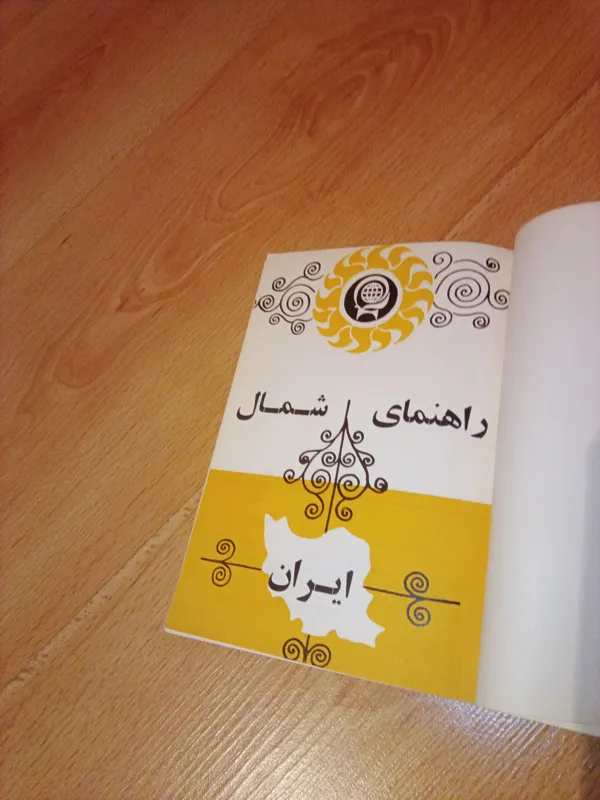 راهنمای شمال
ایران